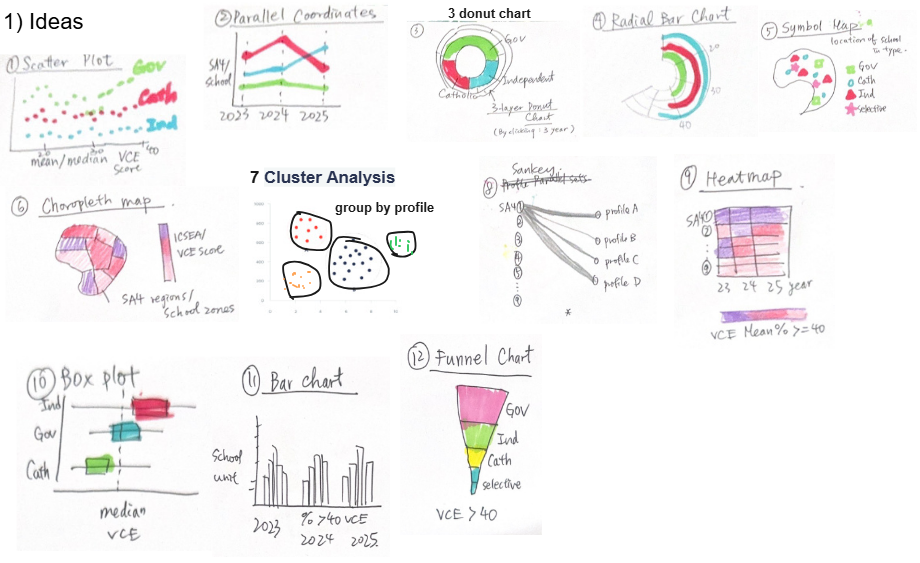 1) Ideas
① Scatter Plot
Gov
Cath
Ind
20
30
40
mean/median VCE
score
② Parallel Coordinates
SA4/
school
2023 2024 2025
3 donut chart
③
Gov
Independent
Catholic
3-layer Donut
Chart
(By clicking : 3 year)
④ Radial Bar Chart
20
30
40
⑤ Symbol Map
location of school
in type.
Gov
Cath
Ind
selective
⑥ Choropleth map
ICSEA/
VCE Score
SA4 regions/
School zones
7 Cluster Analysis
group by profile
Sankey
⑧ Profile Parallel sets
SA4 ①
②
③
④
⑤
⑨
profile A
profile B
profile C
profile D
*
⑨ Heatmap
SA4 ①
②
⑨
23 24 25 year
VCE Mean% >=40
⑩ Box plot
Ind
Gov
Cath
median
VCE
⑪ Bar chart
School
unit
2023
% >40 VCE
2024
2025.
⑫ Funnel Chart
Gov
Ind
Cath
selective
VCE >40